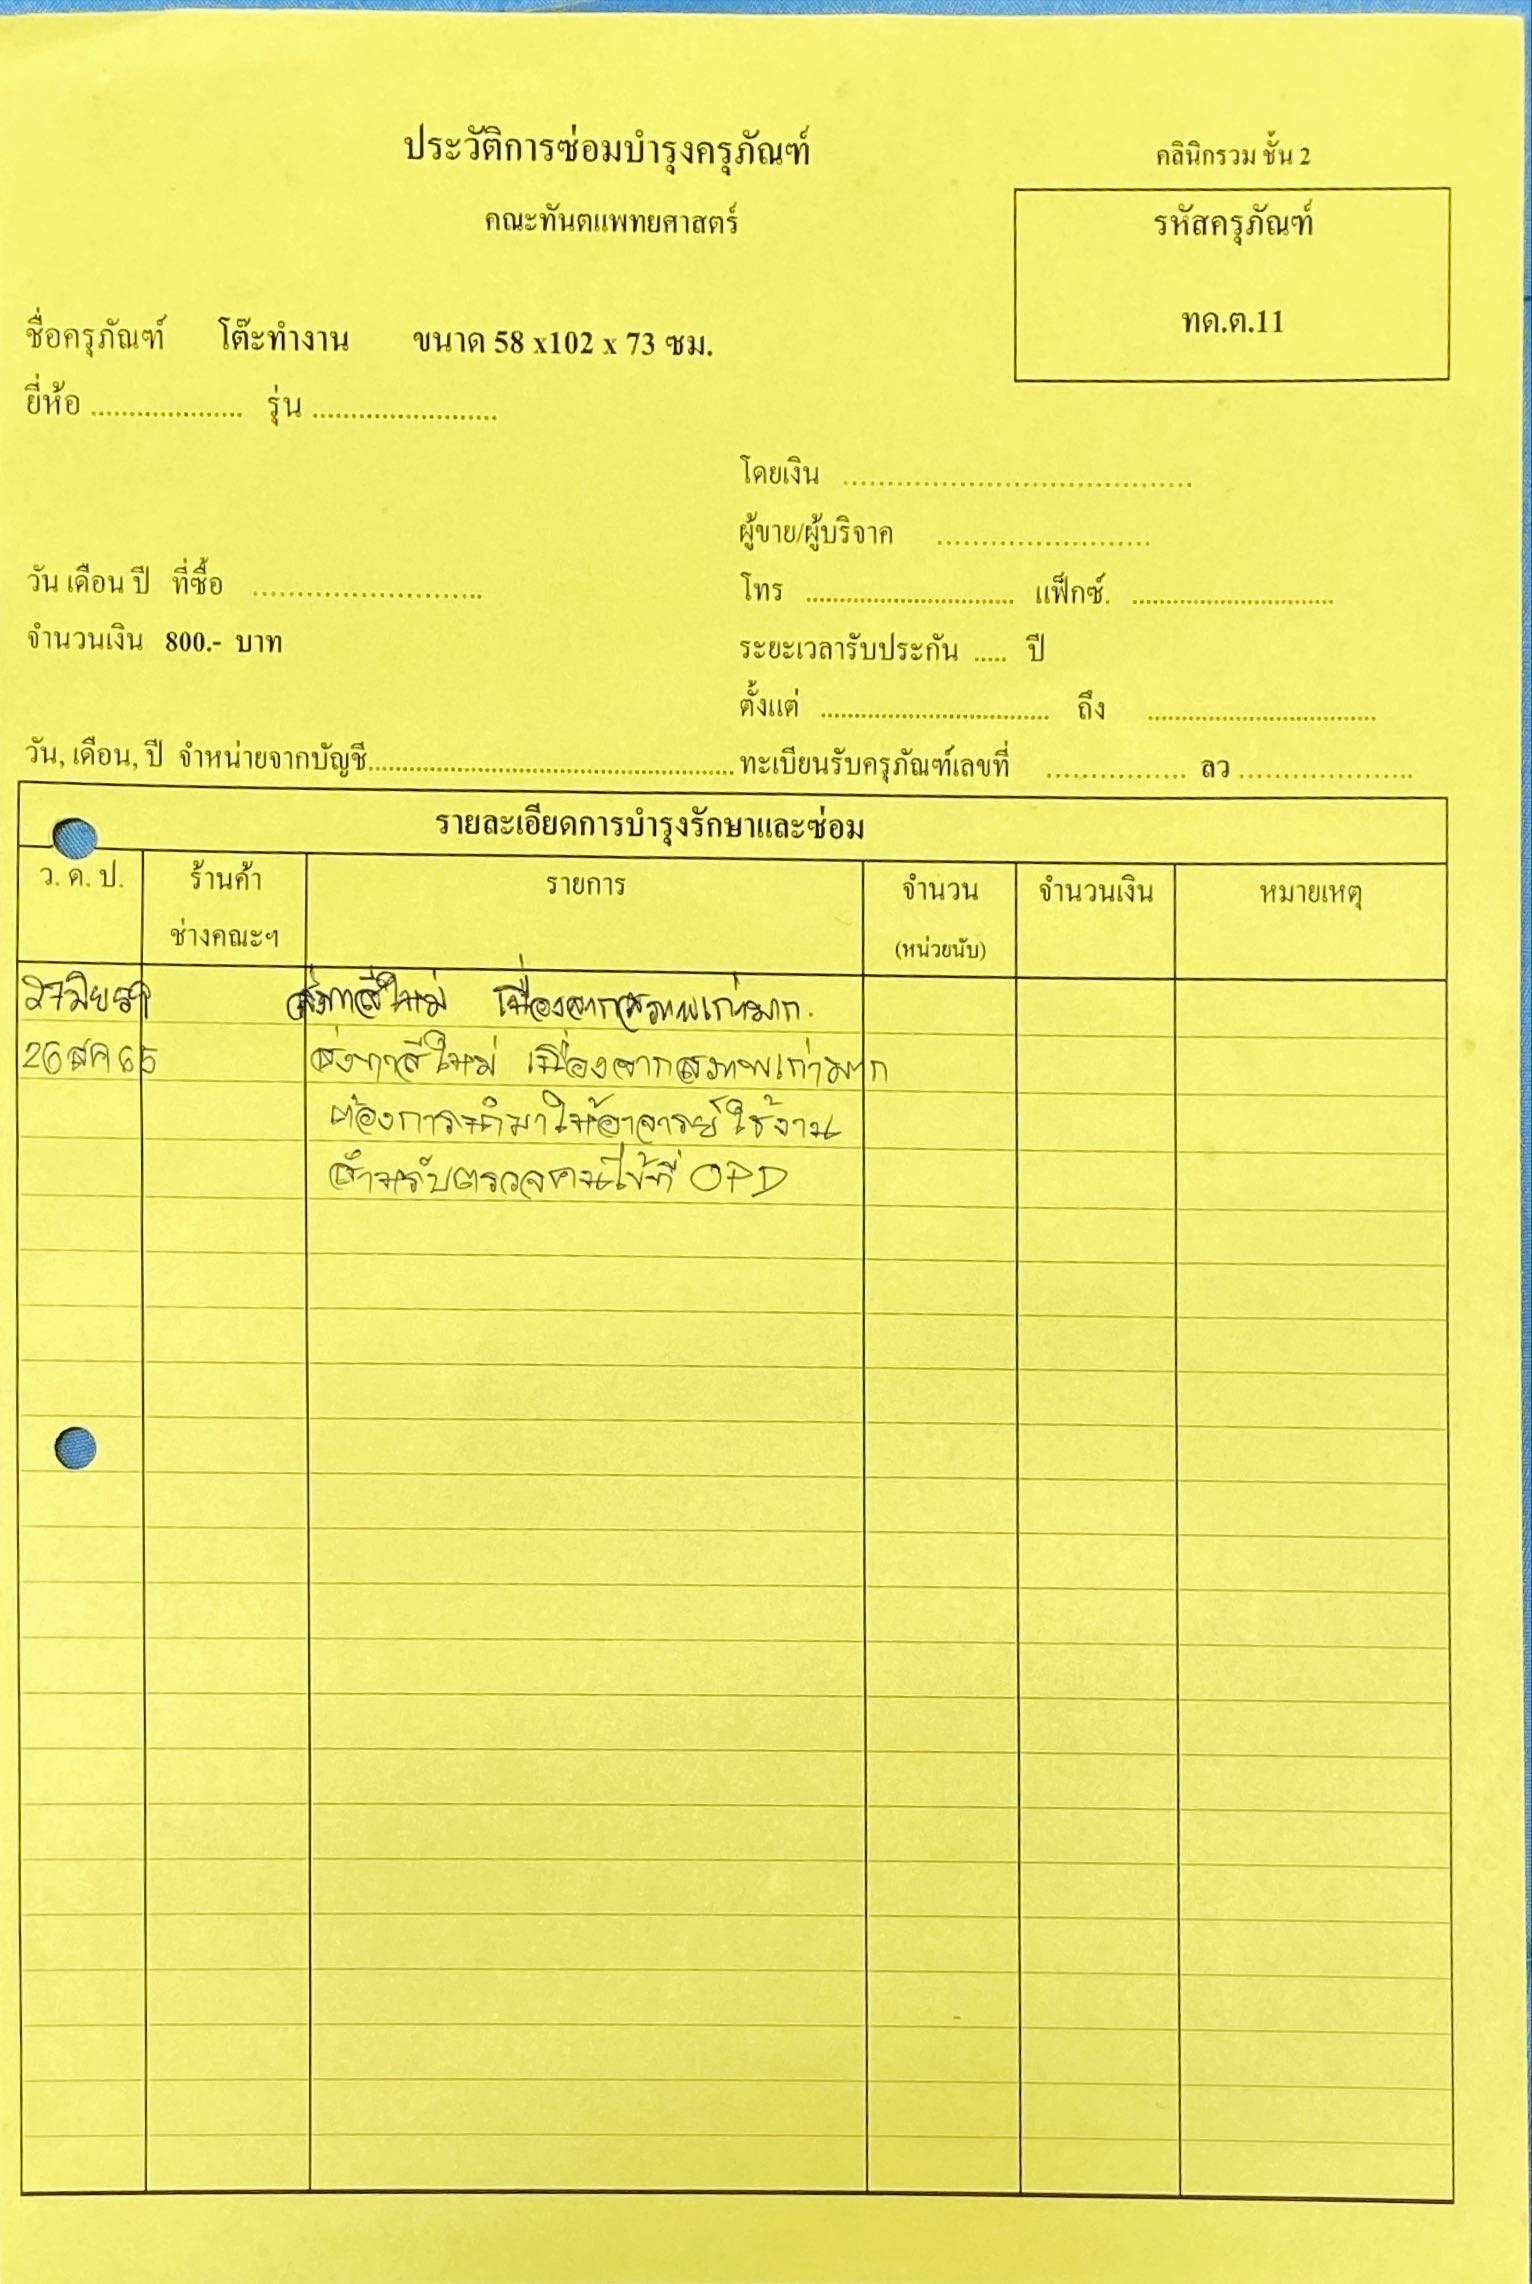 ประวัติการซ่อมบำรุงครุภัณฑ์
คลินิกรวม ชั้น 2
คณะทันตแพทยศาสตร์
รหัสครุภัณฑ์
ทด.ต.11
ชื่อครุภัณฑ์ โต๊ะทำงาน ขนาด 58 x102 x 73 ซม.
ยี่ห้อ .................... รุ่น ........................
โดยเงิน ........................................
ผู้ขาย/ผู้บริจาค ........................
วัน เดือน ปี ที่ซื้อ ..........................
โทร ............................... แฟ็กซ์. ..............................
จำนวนเงิน 800.- บาท
ระยะเวลารับประกัน ..... ปี
ตั้งแต่ .................................. ถึง ..................................
วัน, เดือน, ปี จำหน่ายจากบัญชี.................................................... ทะเบียนรับครุภัณฑ์เลขที่ ................ ลว ....................
รายละเอียดการบำรุงรักษาและซ่อม
ว. ด. ป. ร้านค้า รายการ จำนวน จำนวนเงิน หมายเหตุ
ช่างคณะฯ (หน่วยนับ)
27 มิย ส่งทาสีใหม่ เนื่องจากสภาพเก่ามาก.
26 สค 65 ส่งทาสีใหม่ เนื่องจากสภาพเก่ามาก
ต้องการนำมาให้อาจารย์ใช้งาน
สำหรับตรวจคนไข้ที่ OPD